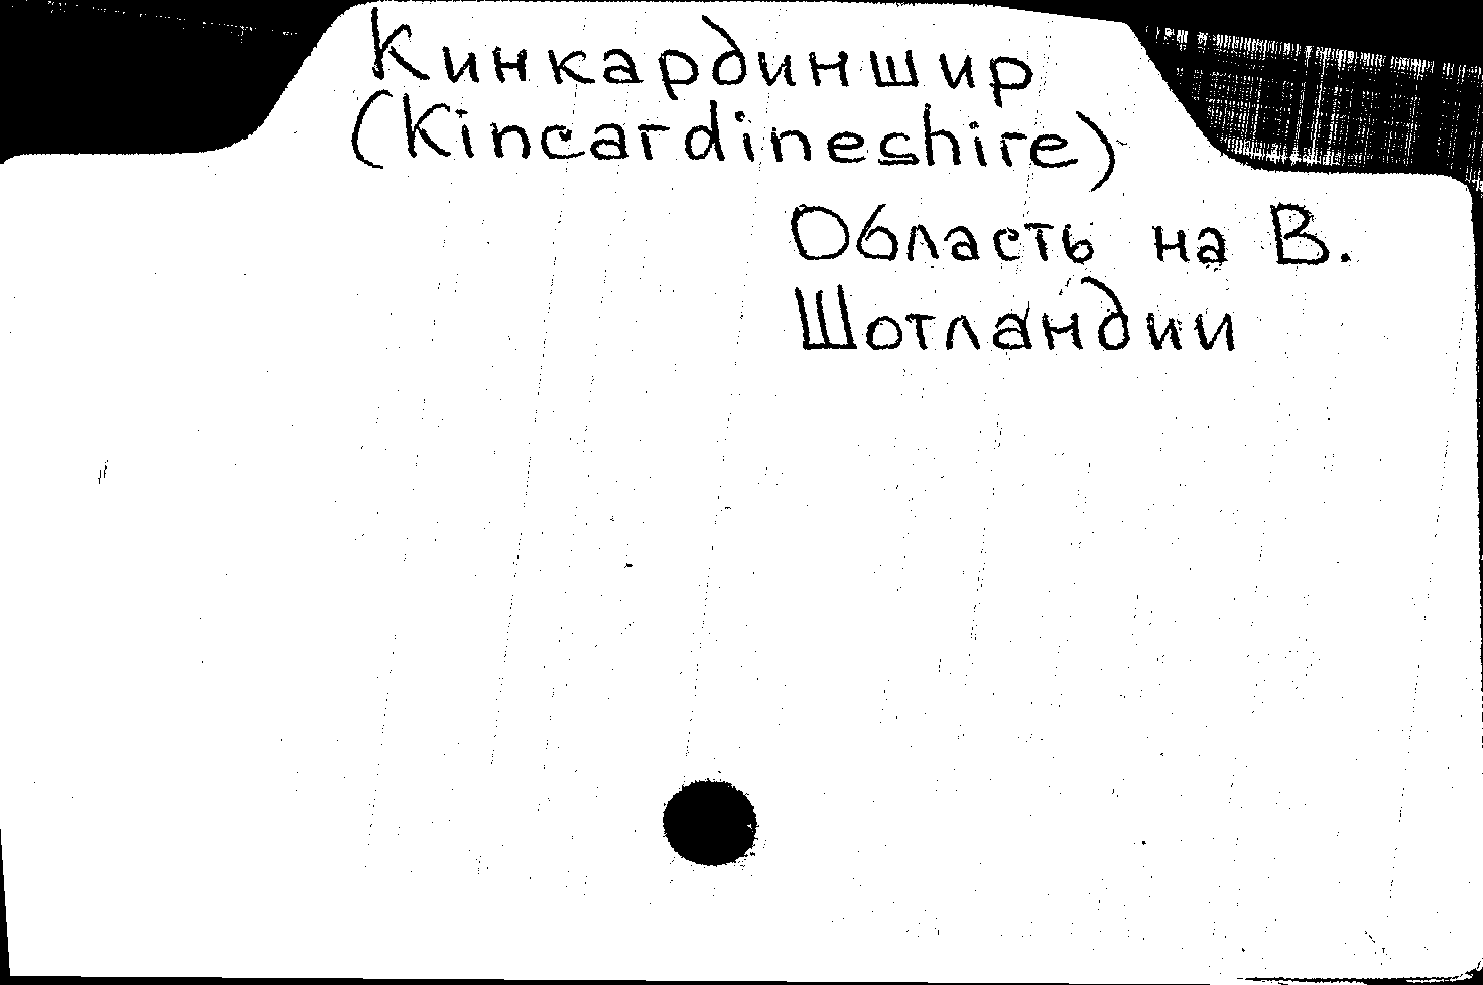 Кинкардиншир
(Kincardineshire)
Область на В.
Шотландии